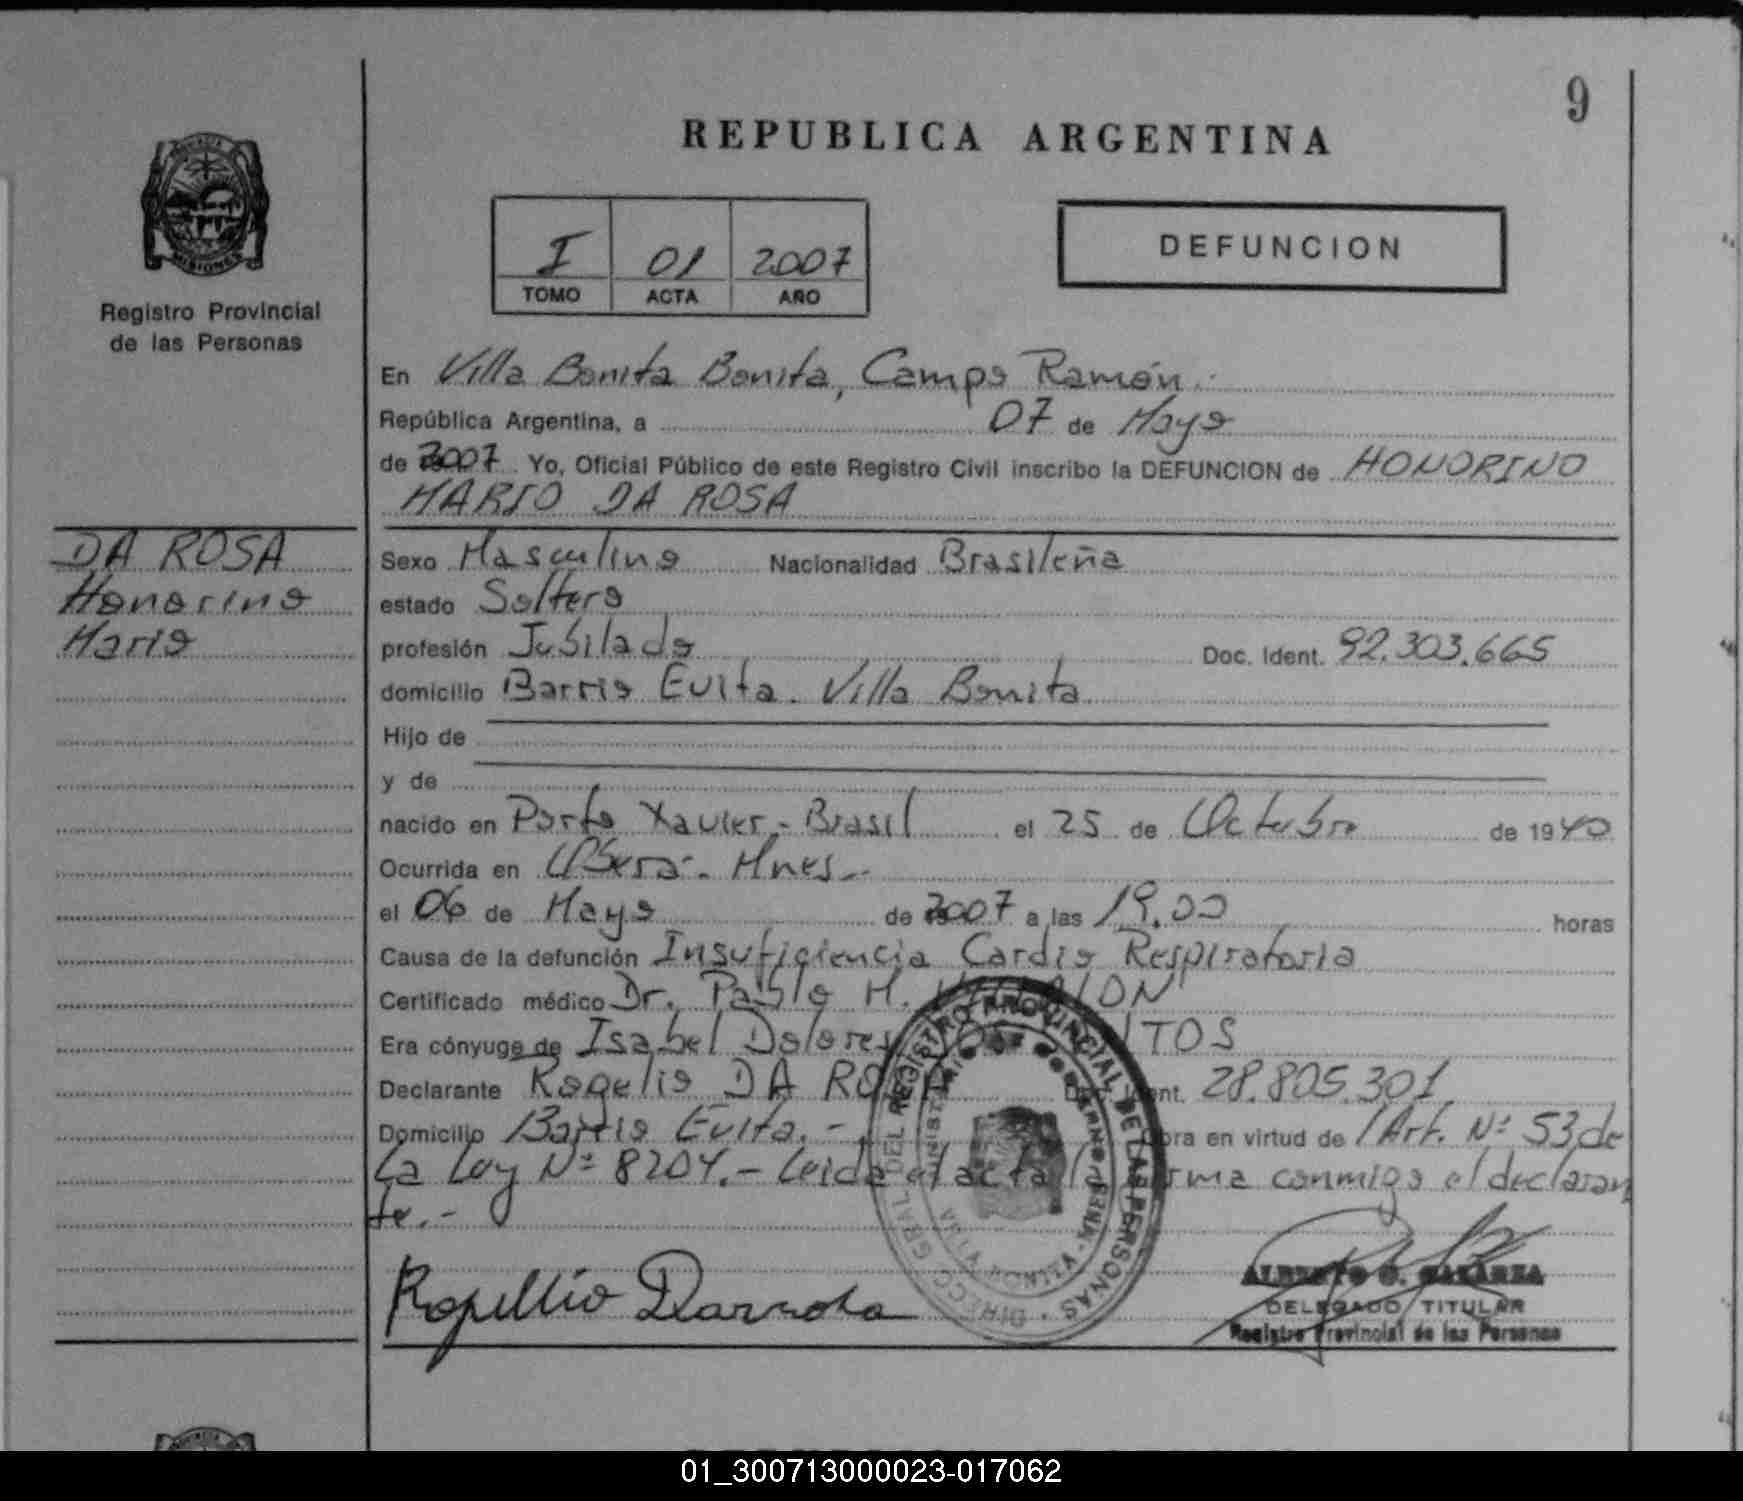 9
REPUBLICA ARGENTINA
MISIONES
Registro Provincial
de las Personas
I 01 2007
TOMO ACTA AÑO
DEFUNCION
En Villa Bonita Bonita, Campo Ramón.-
República Argentina, a 07 de Mayo
de 2007 Yo, Oficial Público de este Registro Civil inscribo la DEFUNCION de HONORINO
MARIO DA ROSA
DA ROSA
Honorino
Mario
Sexo Masculino Nacionalidad Brasileña
estado Soltero
profesión Jubilado Doc. Ident. 92.303.665
domicilio Barrio Evita. Villa Bonita
Hijo de
y de
nacido en Porto Xavier.- Brasil el 25 de Octubre de 1940
Ocurrida en Oberá.- Mnes.-
el 06 de Mayo de 2007 a las 19.00 horas
Causa de la defunción Insuficiencia Cardio Respiratoria
Certificado médico Dr. Pablo M.
Era cónyuge de Isabel Dolores
Declarante Rogelio DA ROSA Doc. Ident. 28.805.301
Domicilio Barrio Evita.- Obra en virtud de l'Art. Nº 53 de
La Ley Nº 8204.- Leida el acta la firma conmigo el declaran
te.-
DIRECC. GRAL DEL REGISTRO PROVINCIAL DE LAS PERSONAS
VILLA BONITA
Rogellio Darrosa
DELEGADO TITULAR
Registro Provincial de las Personas
01_300713000023-017062